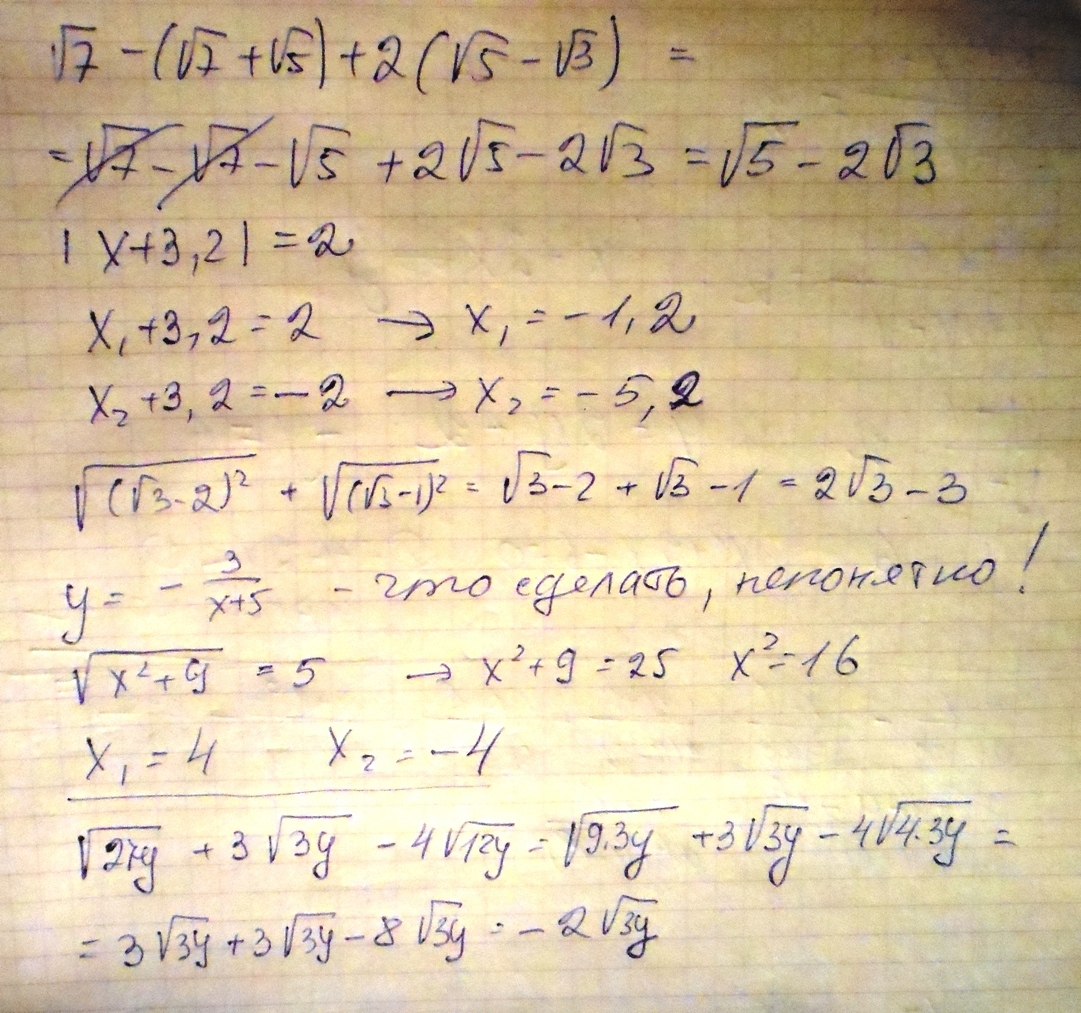 √7 − (√7 + √5) + 2(√5 − √3) =
= √7 − √7 − √5 + 2√5 − 2√3 = √5 − 2√3
|x+3,2| = 2
x₁+3,2 = 2 → x₁ = −1,2
x₂+3,2 = −2 → x₂ = −5,2
√(√3−2)² + √(√3−1)² = √3−2 + √3−1 = 2√3−3
y = − 3/(x+5) - что сделать, непонятно!
√(x²+9) = 5 → x²+9 = 25 x² = 16
x₁ = 4 x₂ = −4
√27y + 3√3y − 4√12y = √9·3y + 3√3y − 4√4·3y =
= 3√3y + 3√3y − 8√3y = −2√3y